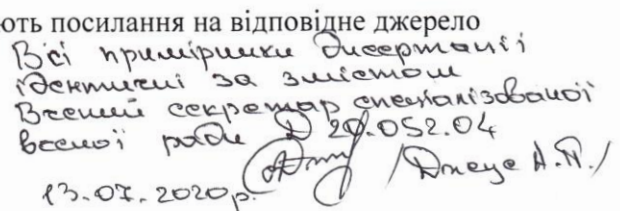 ють посилання на відповідне джерело
Всі примірники дисертації
ідентичні за змістом
Вчений секретар спеціалізованої
вченої ради Д 20.052.04
/Джеус А.П./
13.07.2020р.